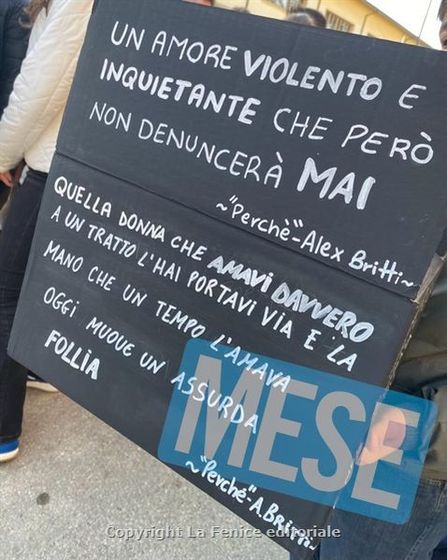 UN AMORE VIOLENTO E
INQUIETANTE CHE PERÒ
NON DENUNCERÀ MAI
~"Perchè"~Alex Britti~
QUELLA DONNA CHE AMAVI DAVVERO
A UN TRATTO L'HAI PORTAVI VIA E LA
MANO CHE UN TEMPO L'AMAVA
OGGI MUOVE UN ASSURDA
FOLLIA
~"Perché"~A.Britti~
MESE
Copyright La Fenice editoriale